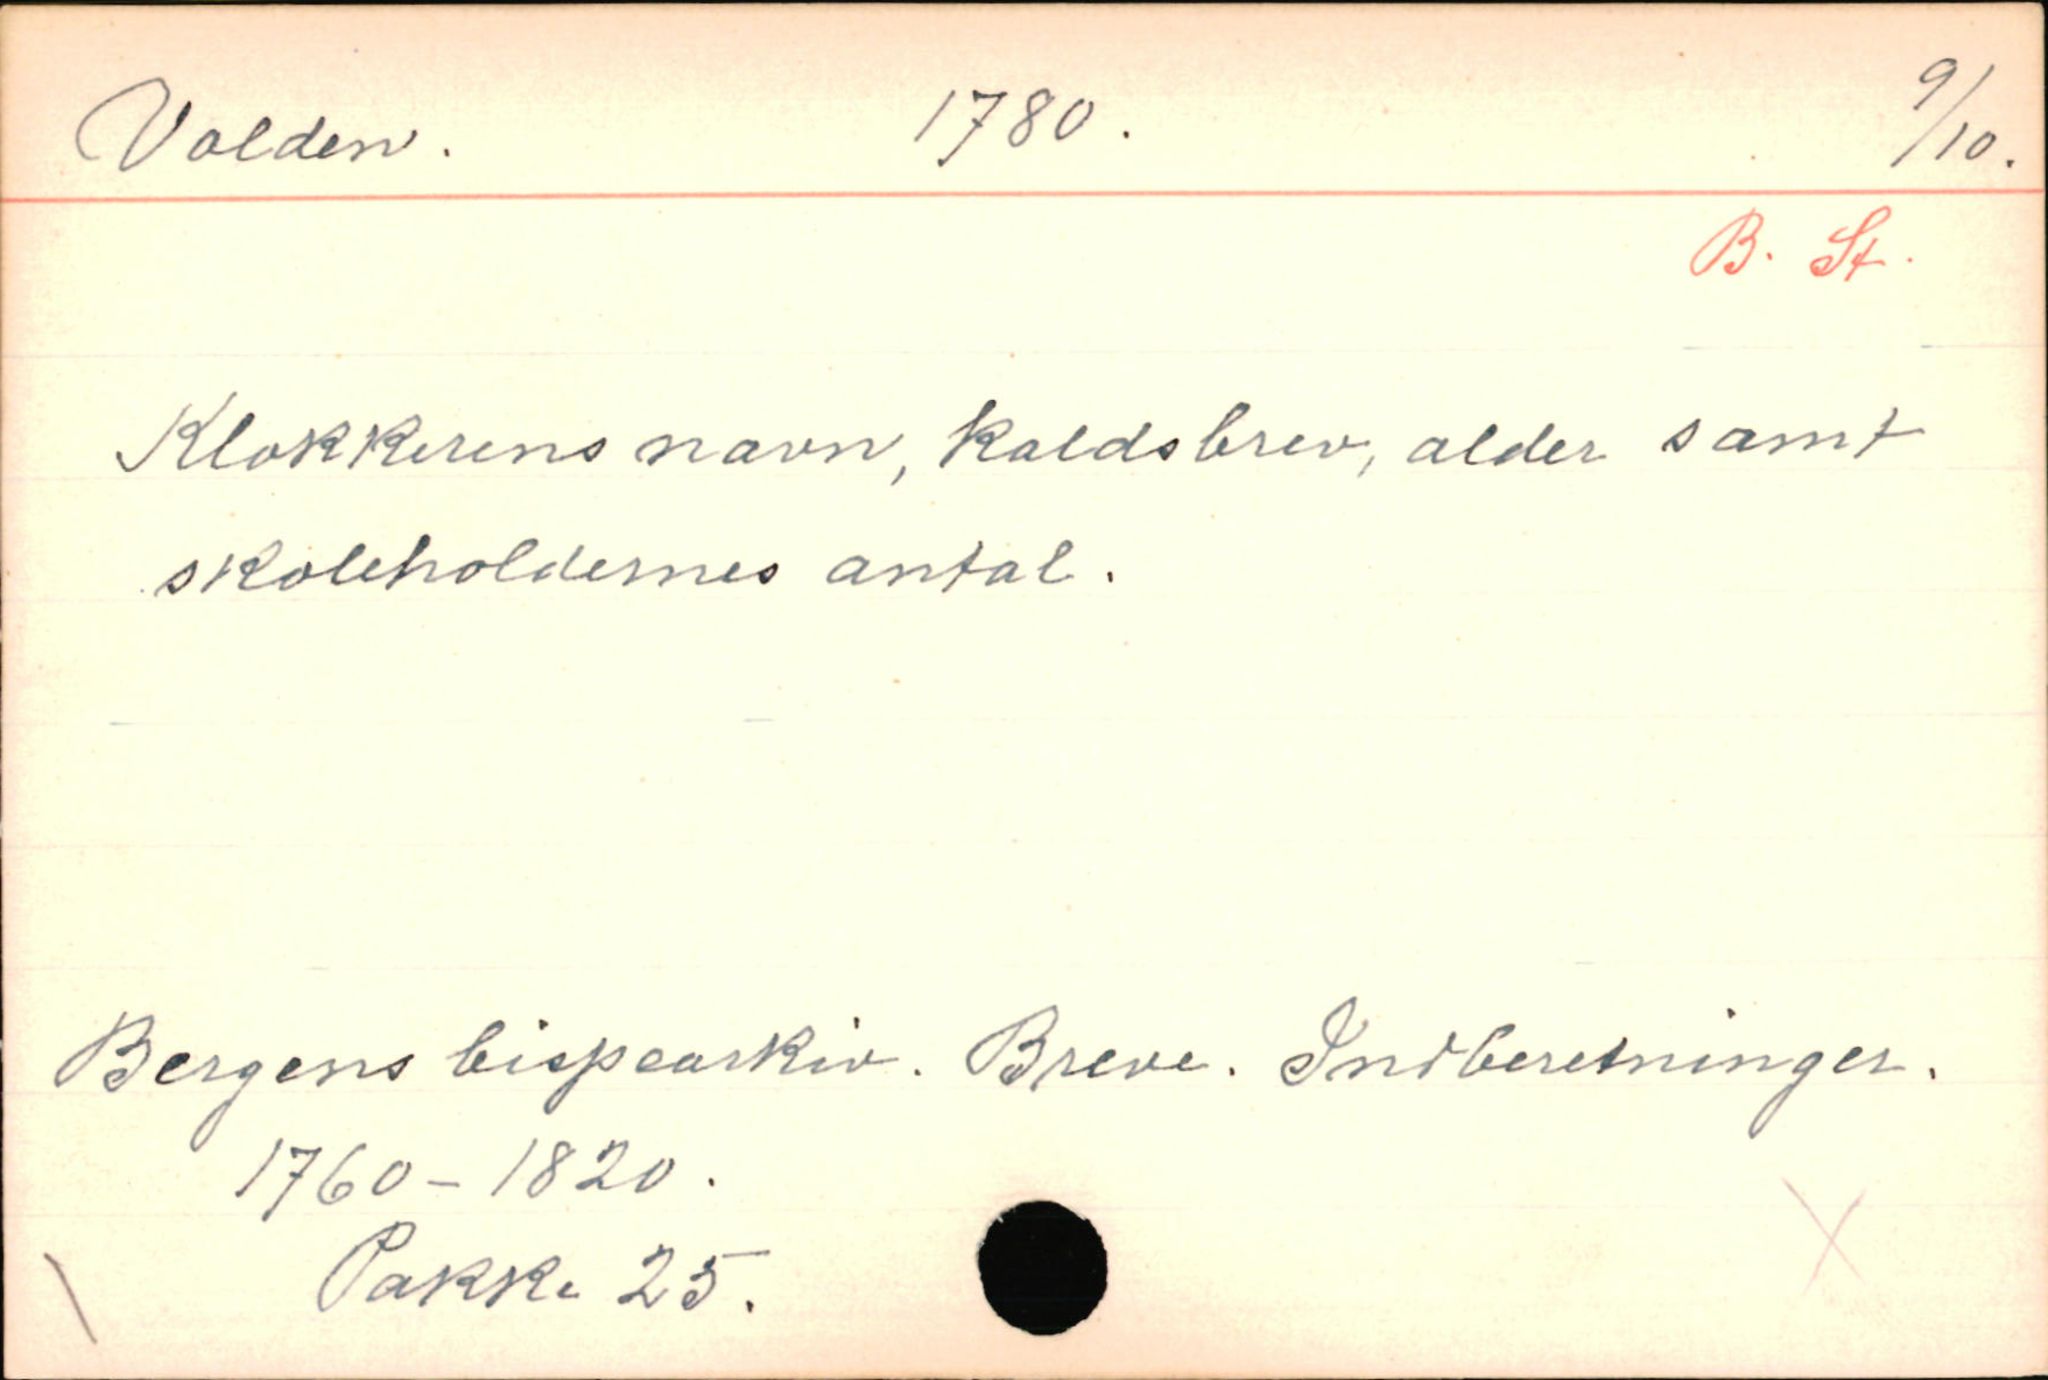 Volden. 1780. 9/10.
B. St.
Klokkerens navn, kaldsbrev, alder samt
skoleholdernes antal.
Bergens bispearkiv. Breve. Indberetninger.
1760-1820.
Pakke 25.